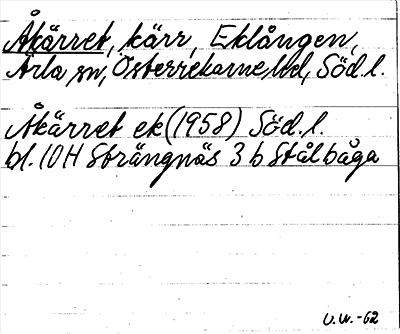 Åkärret, kärr, Eklången,
Ärla sn, Österrekarne hd, Söd.l.
Åkärret ek (1958) Söd.l.
bl. 10H Strängnäs 3 b Stålbåga
U.W.-62